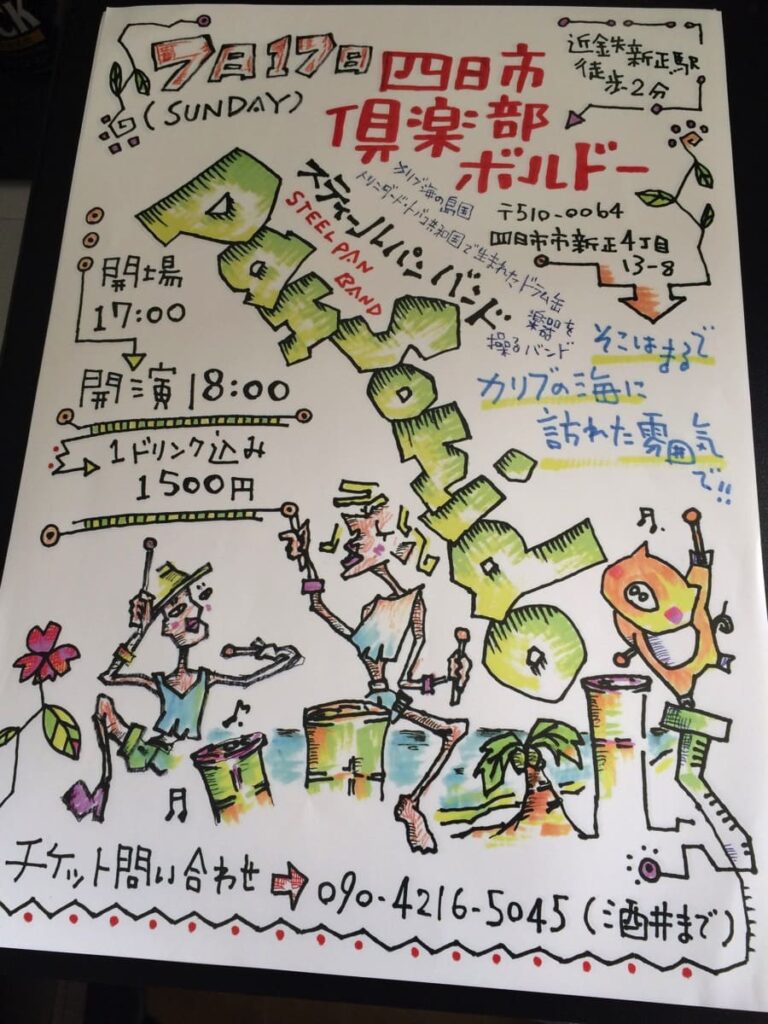 7月17日
(SUNDAY)
四日市
倶楽部
ボルドー
近鉄新正駅
徒歩2分
〒510-0064
四日市市新正4丁目
13-8
カリブ海の島国
トリニダード・トバゴ共和国で生まれたドラム缶
楽器を
操るバンド
スティールパンバンド
STEEL PAN
BAND
Pan Sonti.do
開場
17:00
開演18:00
1ドリンク込み
1500円
そこはまるで
カリブの海に
訪れた雰囲気
で!!
チケット問い合わせ
090-4216-5045(酒井まで)